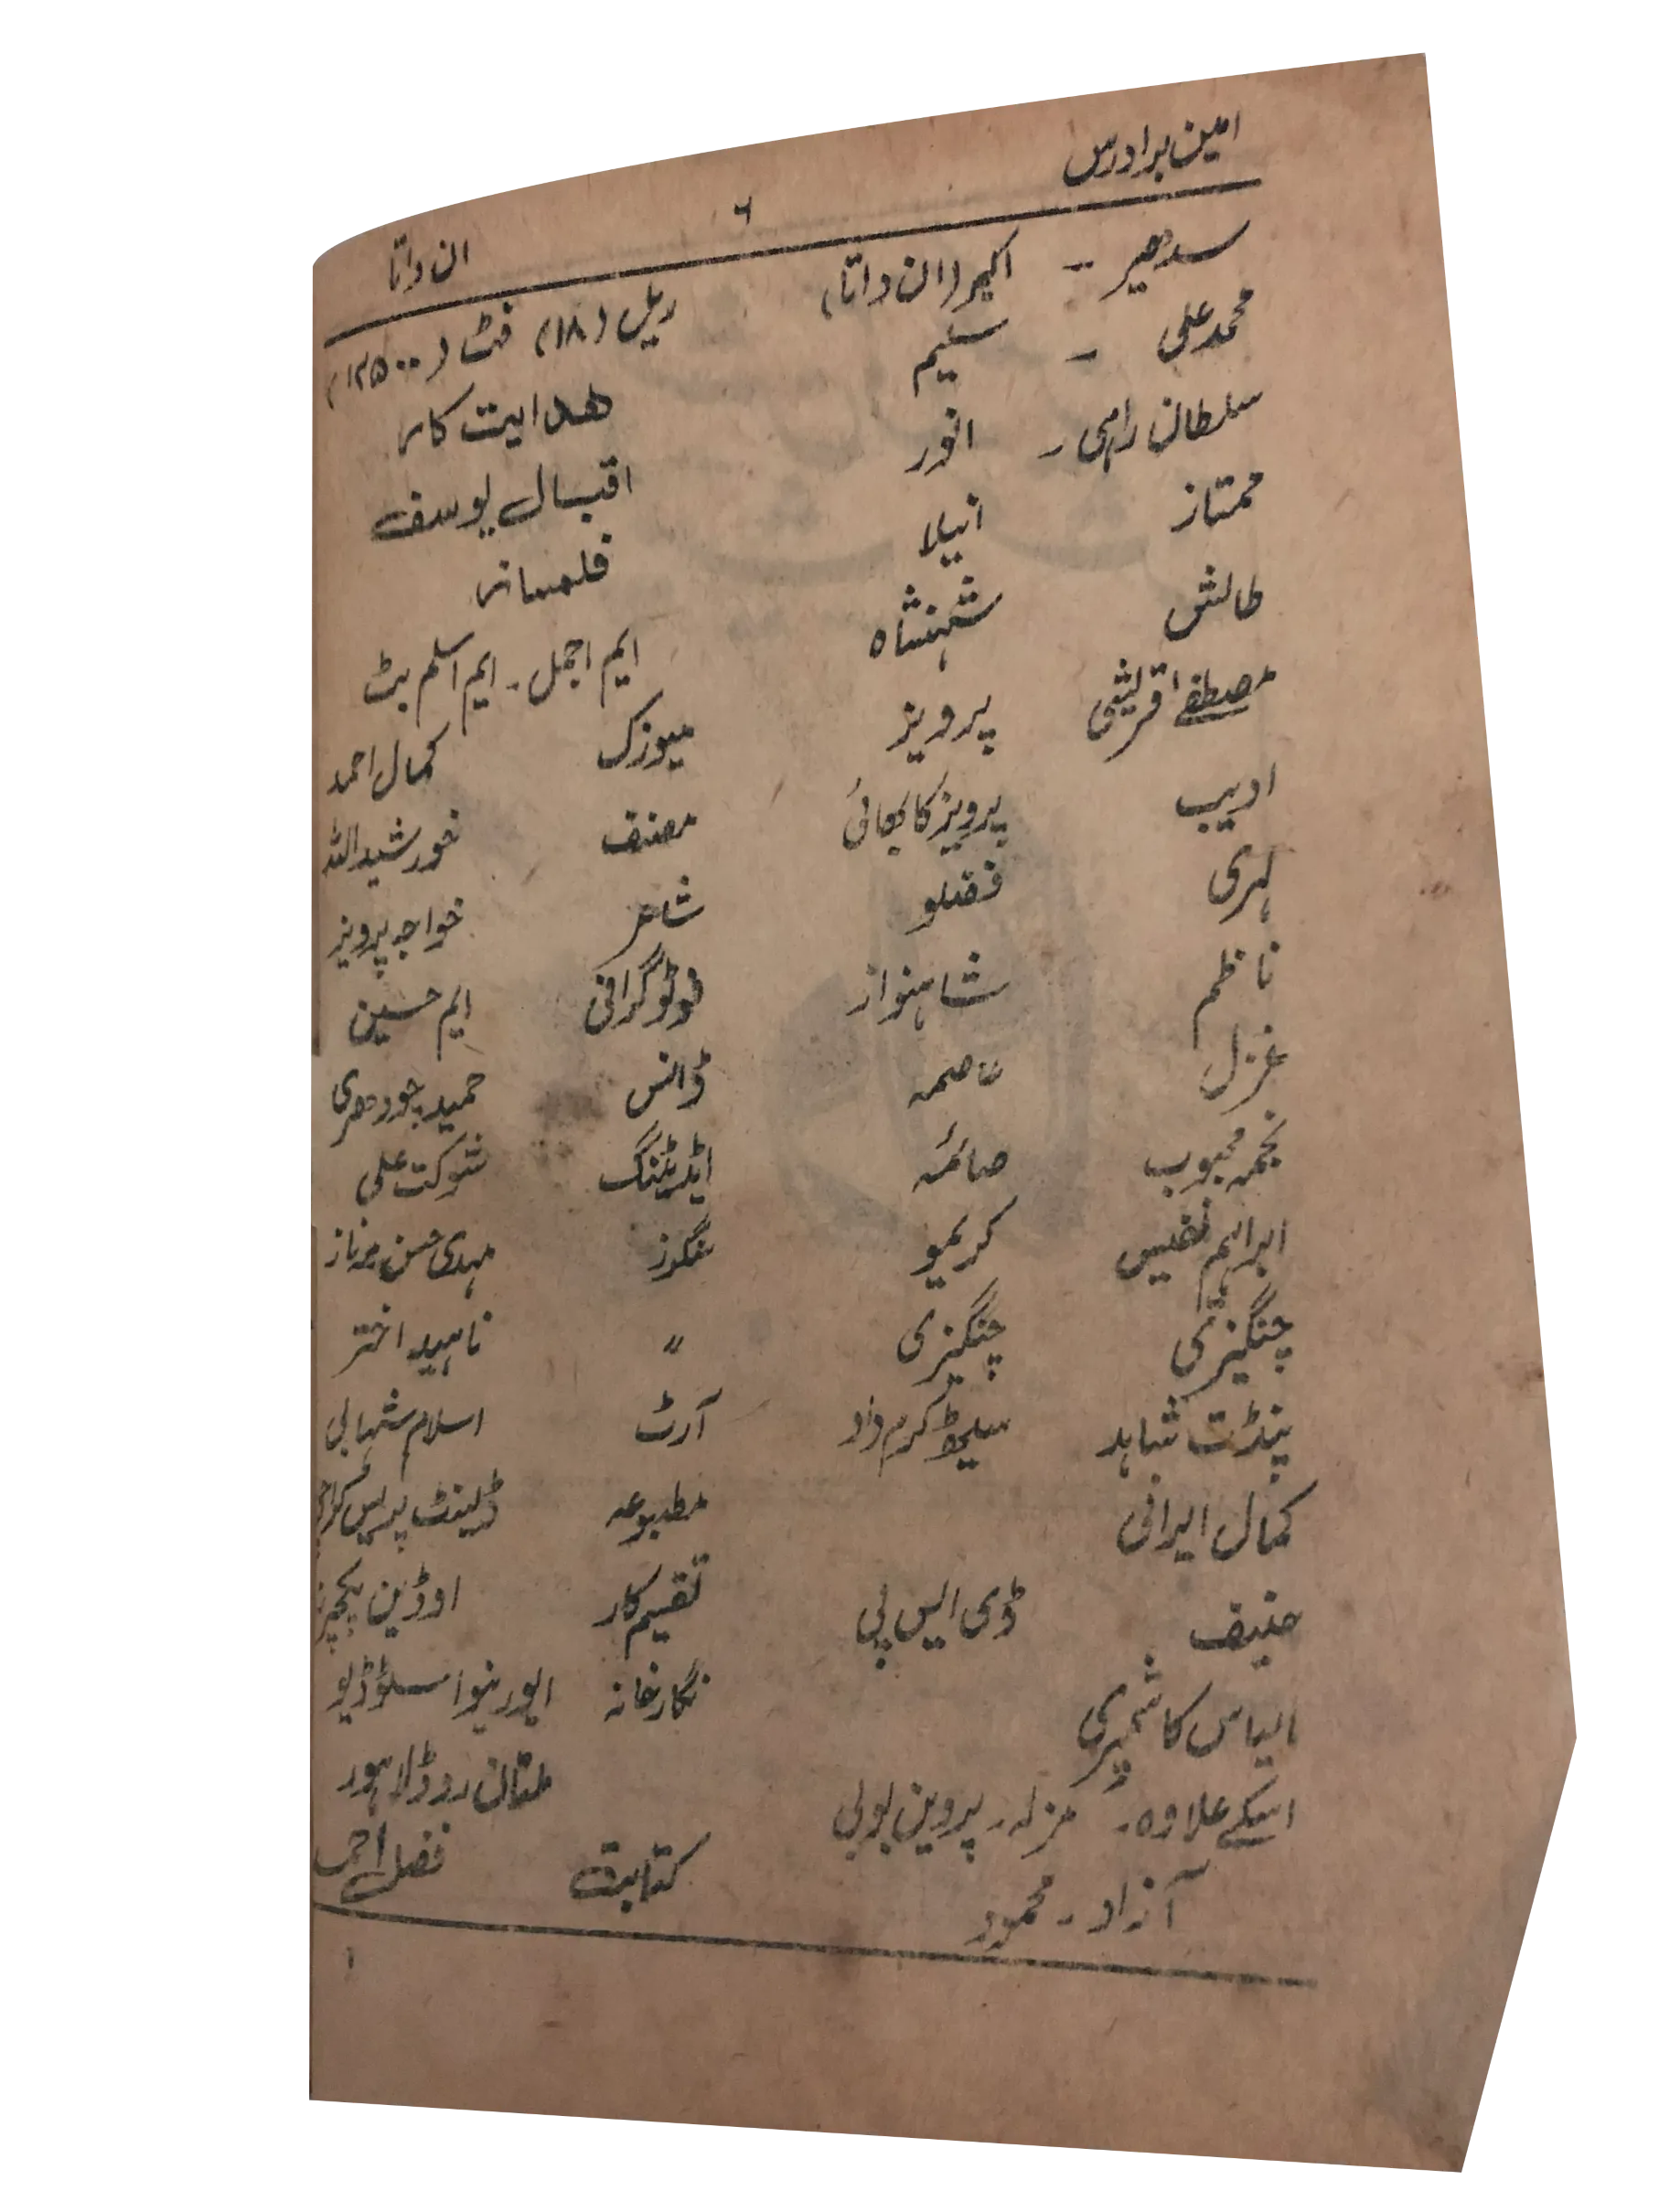 امین برادرس ۶ ان داتا
سدھیر - اکبر (ان داتا) ریل (۱۸) فٹ (۱۲۵۰۰)
محمد علی - سلیم ھدایت کار
سلطان راہی - انور اقبال یوسف
ممتاز انیلا فلمساز
طالش شہنشاہ ایم اجمل - ایم اسلم بٹ
مصطفےٰ قریشی پرویز میوزک کمال احمد
ادیب پرویز کا بھائی مصنف خورشید اللہ
لہری فضلو شاعر خواجہ پرویز
ناظم شاہنواز فوٹوگرافی ایم حسین
غزل عاصمہ ڈانس حمید چودھری
نجمہ محبوب صائمہ ایڈیٹنگ شوکت علی
ابراہیم نفیس کریمو سنگرز مہدی حسن مہناز
چنگیزی چنگیزی " ناہید اختر
پنڈت شاہد سیٹھ کرم داد آرٹ اسلام شہابی
کمال ایرانی مطبوعہ ڈلینٹ پریس
حنیف ڈی ایس پی تقسیم کار اوڈین پکچرز
الیاس کاشمیری نگارخانہ ایورنیو اسٹوڈیو
ملتان روڈ لاہور
اسکے علاوہ - مزلہ - پروین بوبی
آزاد - محمود کتابت فضل احمد